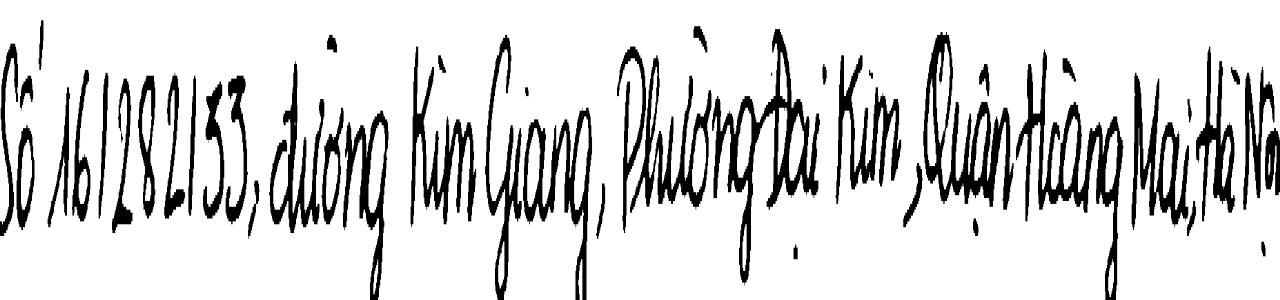 Số 16/282/33, đường Kim Giang, Phường Đại Kim, Quận Hoàng Mai, Hà Nội